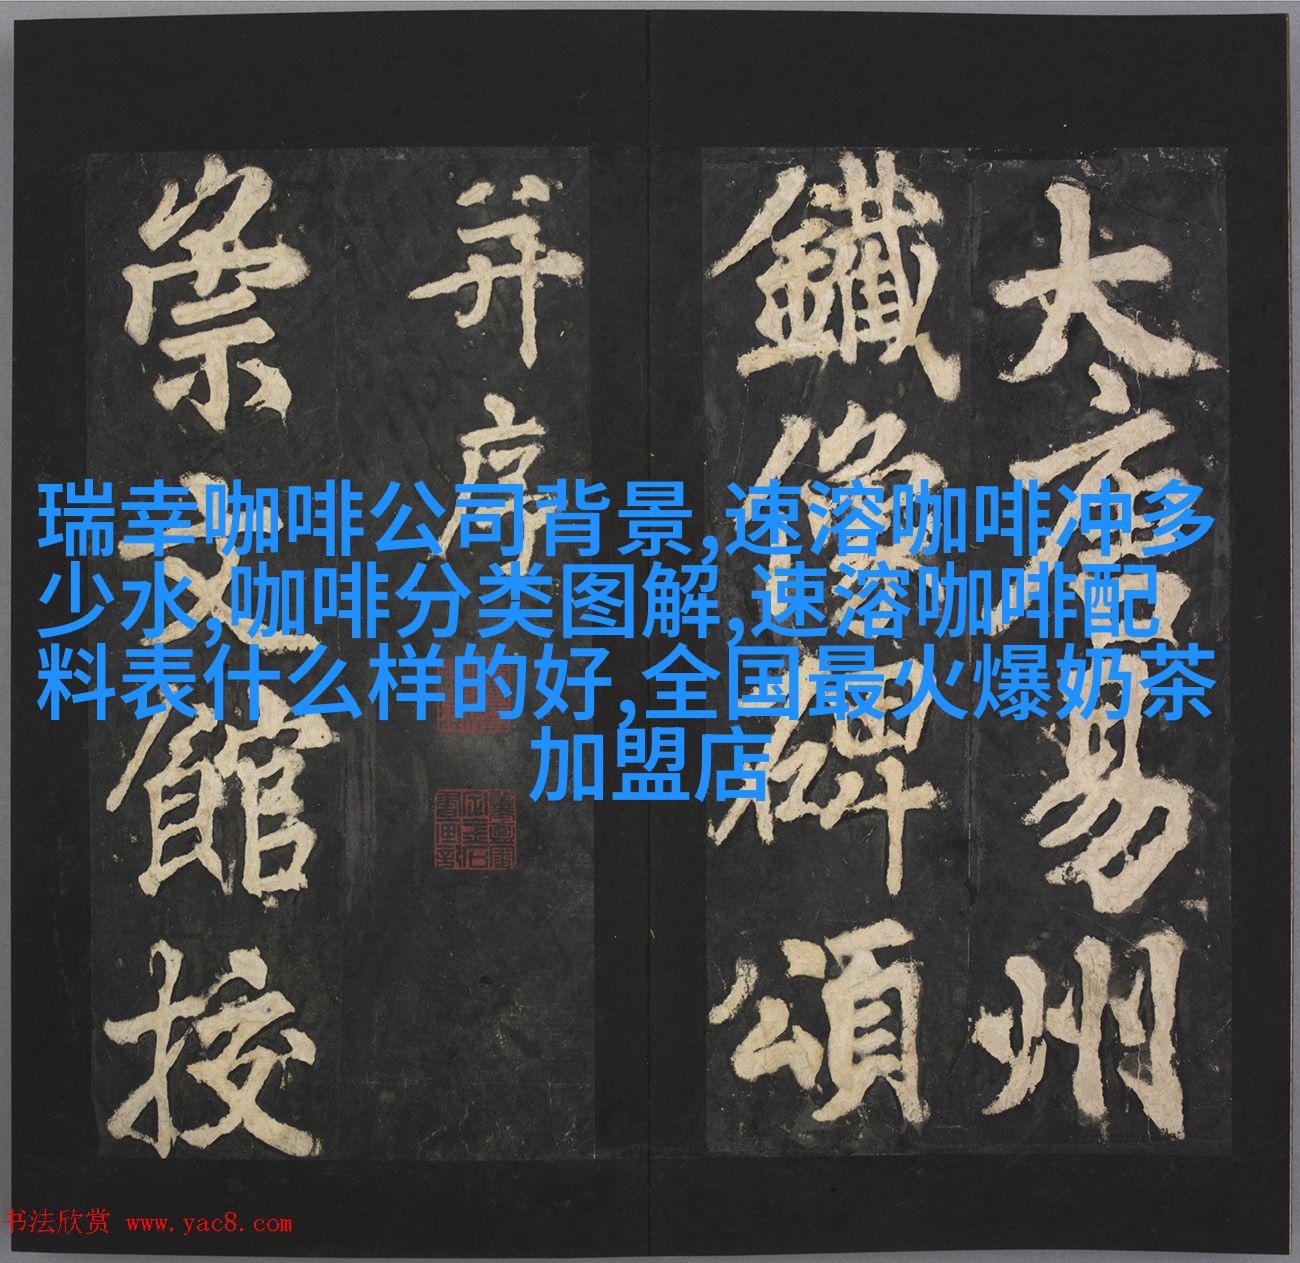 大唐易州
鐵像碑頌
并序
崇文館挍
瑞幸咖啡公司背景,速溶咖啡冲多
少水,咖啡分类图解,速溶咖啡配
料表什么样的好,全国最火爆奶茶
加盟店
书法欣赏 www.yac8.com